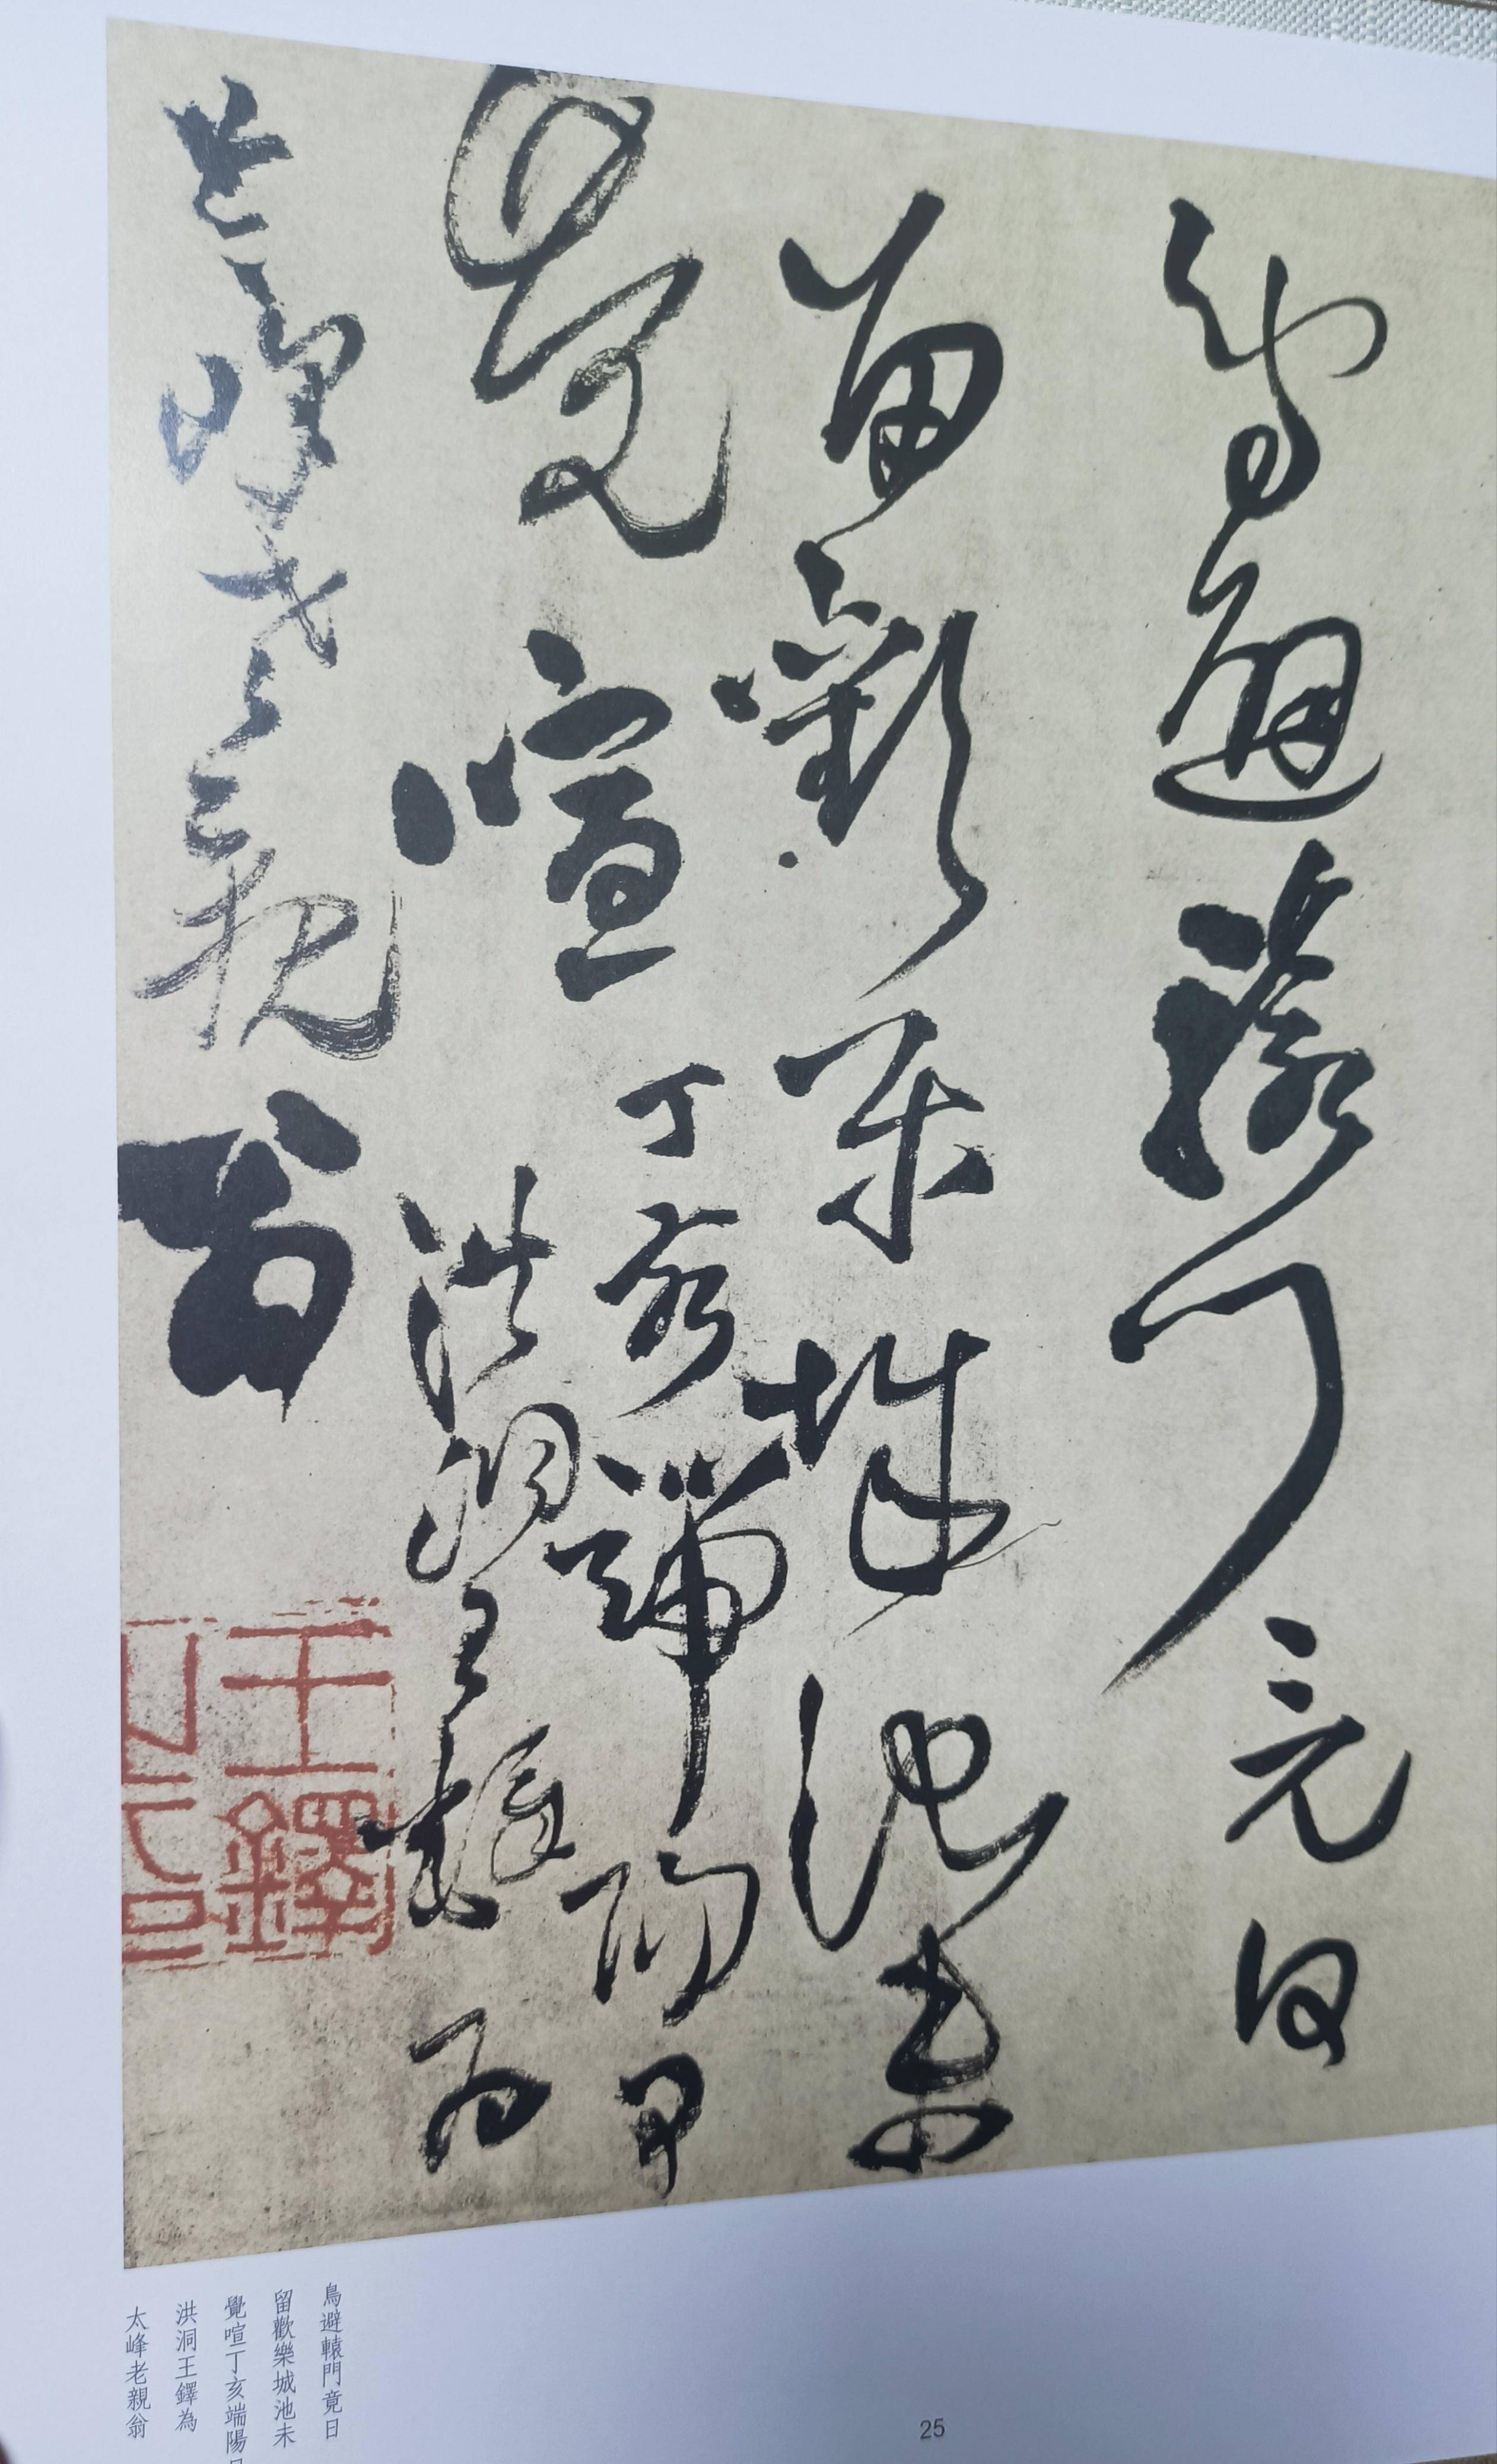 鳥避轅門竟日
留歡樂城池未
覺喧丁亥端陽月
洪洞王鐸為
太峰老親翁
王鐸
之印
鳥避轅門竟日
留歡樂城池未
覺喧丁亥端陽
洪洞王鐸為
太峰老親翁
25